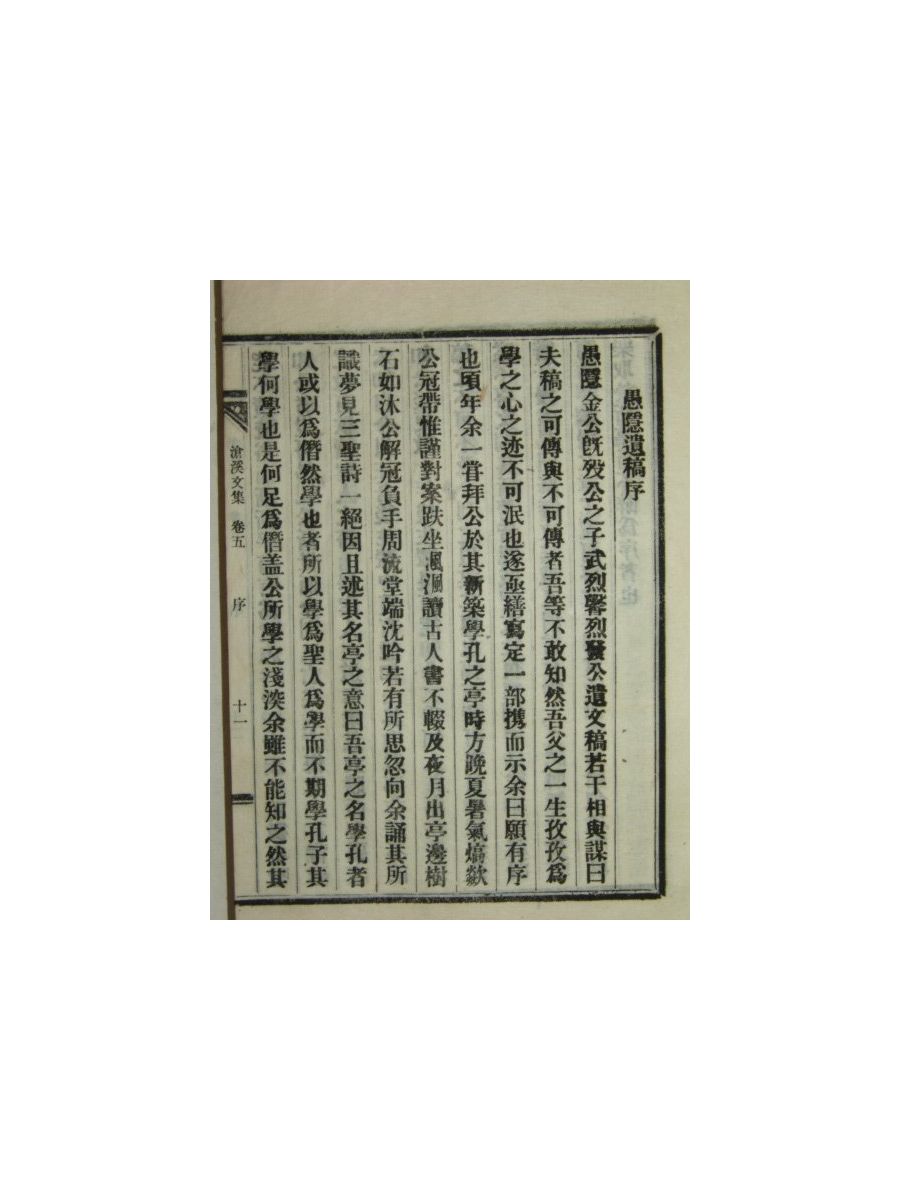 愚隱遺稿序
愚隱金公旣歿公之子武烈馨烈發公遺文稿若干相與謀曰
夫稿之可傳與不可傳者吾等不敢知然吾父之一生孜孜爲
學之心之迹不可泯也遂亟繕寫定一部携而示余曰願有序
也頃年余一甞拜公於其新築學孔之亭時方晚夏暑氣熇歊
公冠帶惟謹對案趺坐渢渢讀古人書不輟及夜月出亭邊樹
石如沐公解冠負手周流堂端沈吟若有所思忽向余誦其所
識夢見三聖詩一絕因且述其名亭之意曰吾亭之名學孔者
人或以爲僭然學也者所以學爲聖人爲學而不期學孔子其
學何學也是何足爲僭盖公所學之淺深余雖不能知之然其
滄溪文集 卷五 序 十一